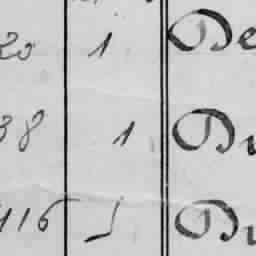 20 1 De
38 1 Du
116 1 Du